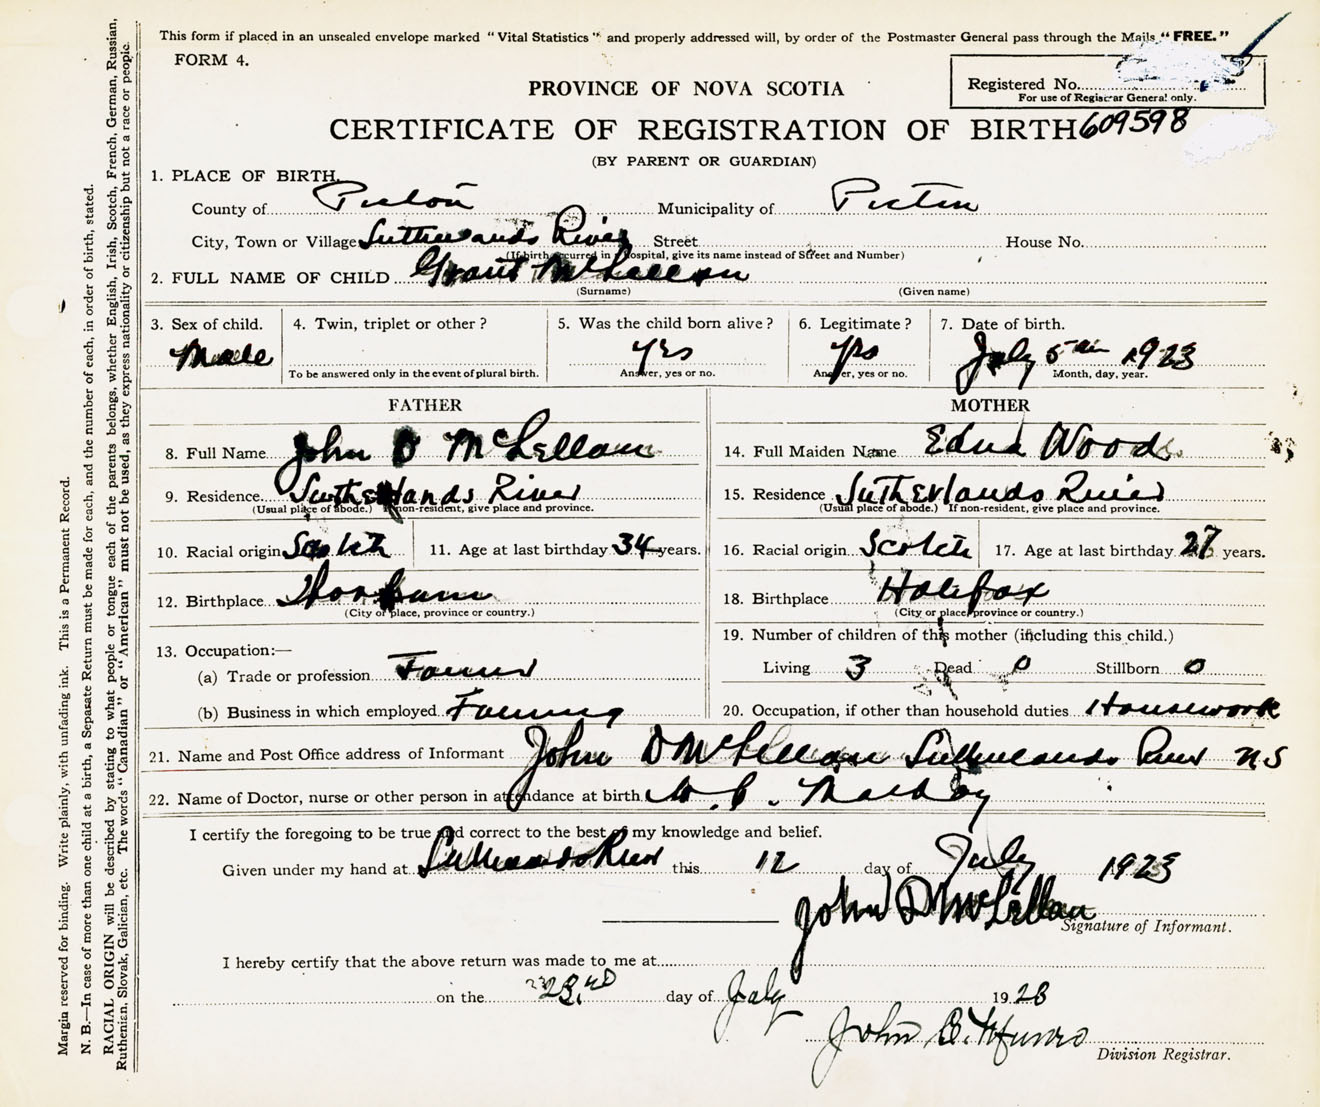 This form if placed in an unsealed envelope marked "Vital Statistics" and properly addressed will, by order of the Postmaster General pass through the Mails "FREE."
FORM 4.
Registered No.
For use of Registrar General only.
PROVINCE OF NOVA SCOTIA
CERTIFICATE OF REGISTRATION OF BIRTH 609598
(BY PARENT OR GUARDIAN)
1. PLACE OF BIRTH.
County of Pictou Municipality of Pictou
City, Town or Village Sutherlands River Street House No.
(If birth occurred in Hospital, give its name instead of Street and Number)
2. FULL NAME OF CHILD Grant McLellan
(Surname) (Given name)
3. Sex of child. 4. Twin, triplet or other? 5. Was the child born alive? 6. Legitimate? 7. Date of birth.
Male yes yes July 5th 1923
To be answered only in the event of plural birth. Answer, yes or no. Answer, yes or no. Month, day, year.
FATHER MOTHER
8. Full Name John D McLellan 14. Full Maiden Name Edna Wood
9. Residence Sutherlands River 15. Residence Sutherlands River
(Usual place of abode.) If non-resident, give place and province. (Usual place of abode.) If non-resident, give place and province.
10. Racial origin Scotch 11. Age at last birthday 34 years. 16. Racial origin Scotch 17. Age at last birthday 27 years.
12. Birthplace Thorburn 18. Birthplace Halifax
(City or place, province or country.) (City or place, province or country.)
13. Occupation:— 19. Number of children of this mother (including this child.)
(a) Trade or profession Farmer Living 3 Dead 0 Stillborn 0
(b) Business in which employed Farming 20. Occupation, if other than household duties Housework
21. Name and Post Office address of Informant John D McLellan Sutherlands River N S
22. Name of Doctor, nurse or other person in attendance at birth
I certify the foregoing to be true and correct to the best of my knowledge and belief.
Given under my hand at Sutherlands River this 12 day of July 1923
John D McLellan
Signature of Informant.
I hereby certify that the above return was made to me at
on the 23rd day of July 1923
John B. Munro
Division Registrar.
Margin reserved for binding. Write plainly, with unfading ink. This is a Permanent Record.
N. B.—In case of more than one child at a birth, a Separate Return must be made for each, and the number of each, in order of birth, stated.
RACIAL ORIGIN will be described by stating to what people or tongue each of the parents belongs, whether English, Irish, Scotch, French, German, Russian,
Ruthenian, Slovak, Galician, etc. The words "Canadian" or "American" must not be used, as they express nationality or citizenship but not a race or people.